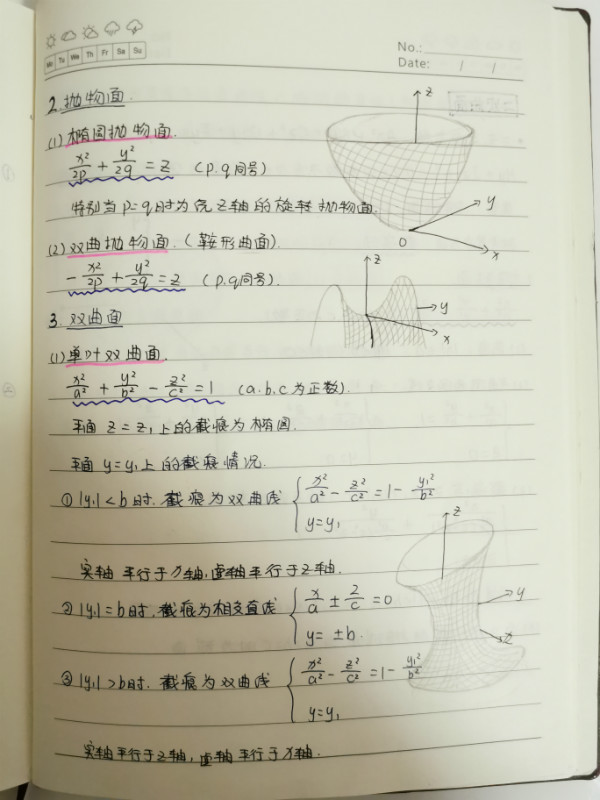 No.:
Mo Tu We Th Fr Sa Su
Date: / /
2. 抛物面.
(1) 椭圆抛物面.
x²/2p + y²/2q = z (p.q同号)
特别当 p=q时为绕Z轴的旋转抛物面.
z
y
x
O
(2) 双曲抛物面. (鞍形曲面).
-x²/2p + y²/2q = z (p.q同号).
z
y
x
3. 双曲面
(1) 单叶双曲面.
x²/a² + y²/b² - z²/c² = 1 (a.b.c为正数).
平面 z = z₁上的截痕为椭圆.
平面 y = y₁上的截痕情况.
① |y₁| < b时. 截痕为双曲线 { x²/a² - z²/c² = 1 - y₁²/b²
y = y₁
实轴平行于x轴, 虚轴平行于z轴.
② |y₁| = b时. 截痕为相交直线 { x/a ± z/c = 0
y = ±b.
③ |y₁| > b时. 截痕为双曲线 { x²/a² - z²/c² = 1 - y₁²/b²
y = y₁
实轴平行于z轴, 虚轴平行于x轴.
z
y
x